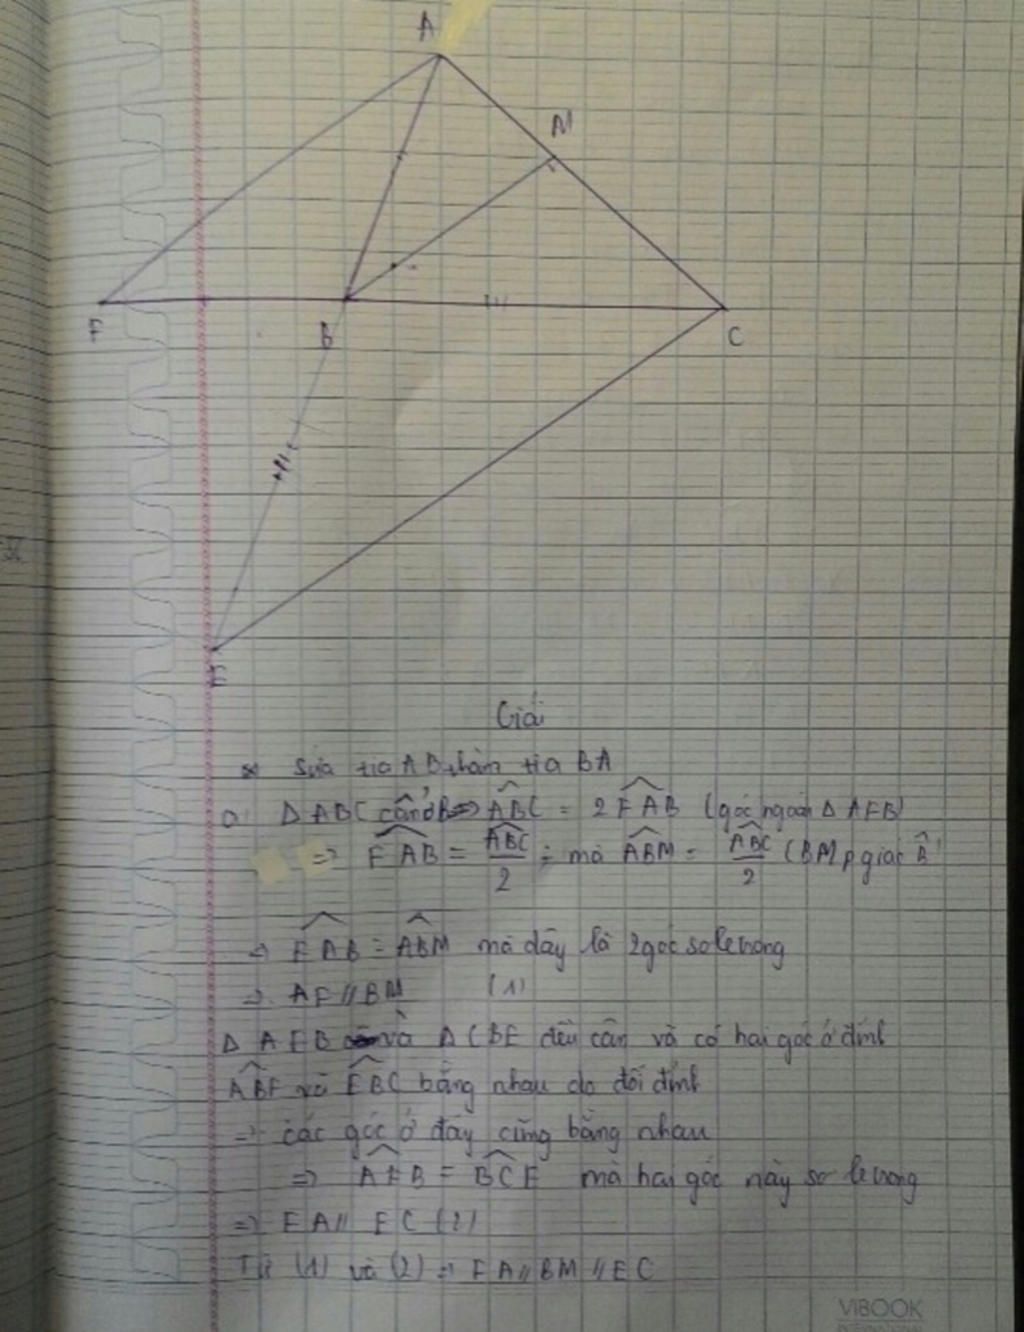 A
M
F
B
C
E
Giải
Sửa tia AB thành tia BA
a) Δ ABC cân ở B => ABC = 2 FAB (góc ngoài Δ AFB)
=> FAB = ABC/2 ; mà ABM = ABC/2 (BM p giác B)
=> FAB = ABM mà đây là 2 góc so le trong
=> AF // BM (1)
Δ AFB và Δ CBE đều cân và có hai góc ở đỉnh
ABF và EBC bằng nhau do đối đỉnh
=> các góc ở đáy cũng bằng nhau
=> AFB = BCE mà hai góc này so le trong
=> FA // EC (2)
Từ (1) và (2) => FA // BM // EC
VIBOOK